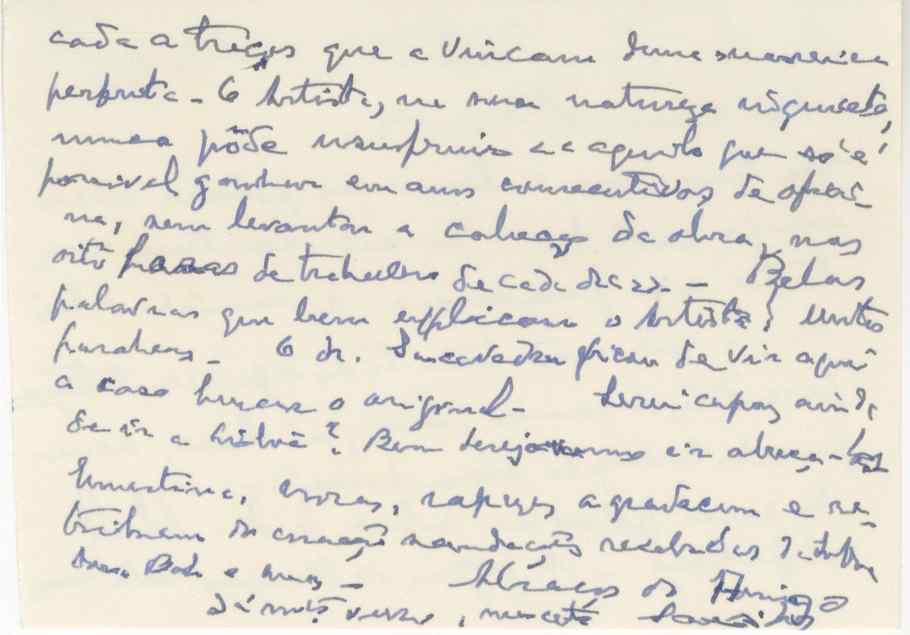 cada a traços que a vincam duma maneira
perfeita - O Artista, na sua natureza inquieta,
nunca pôde usufruir aquilo que só é
possivel ganhar em anos consecutivos de ofici-
na, sem levantar a cabeça da obra, nas
oito horas de trabalho de cada dia >>. - Belas
palavras que bem explicam o Artista! Muitos
parabens - O dr. ficou de vir aqui
a casa buscar o original - Serei capaz ainda
de ir a Lisboa? Bem desejavamos ir abraça-los
Ernestina, noras, rapazes agradecem e re-
tribuem do coração saudações recebidas
e - Abraços do Amigo